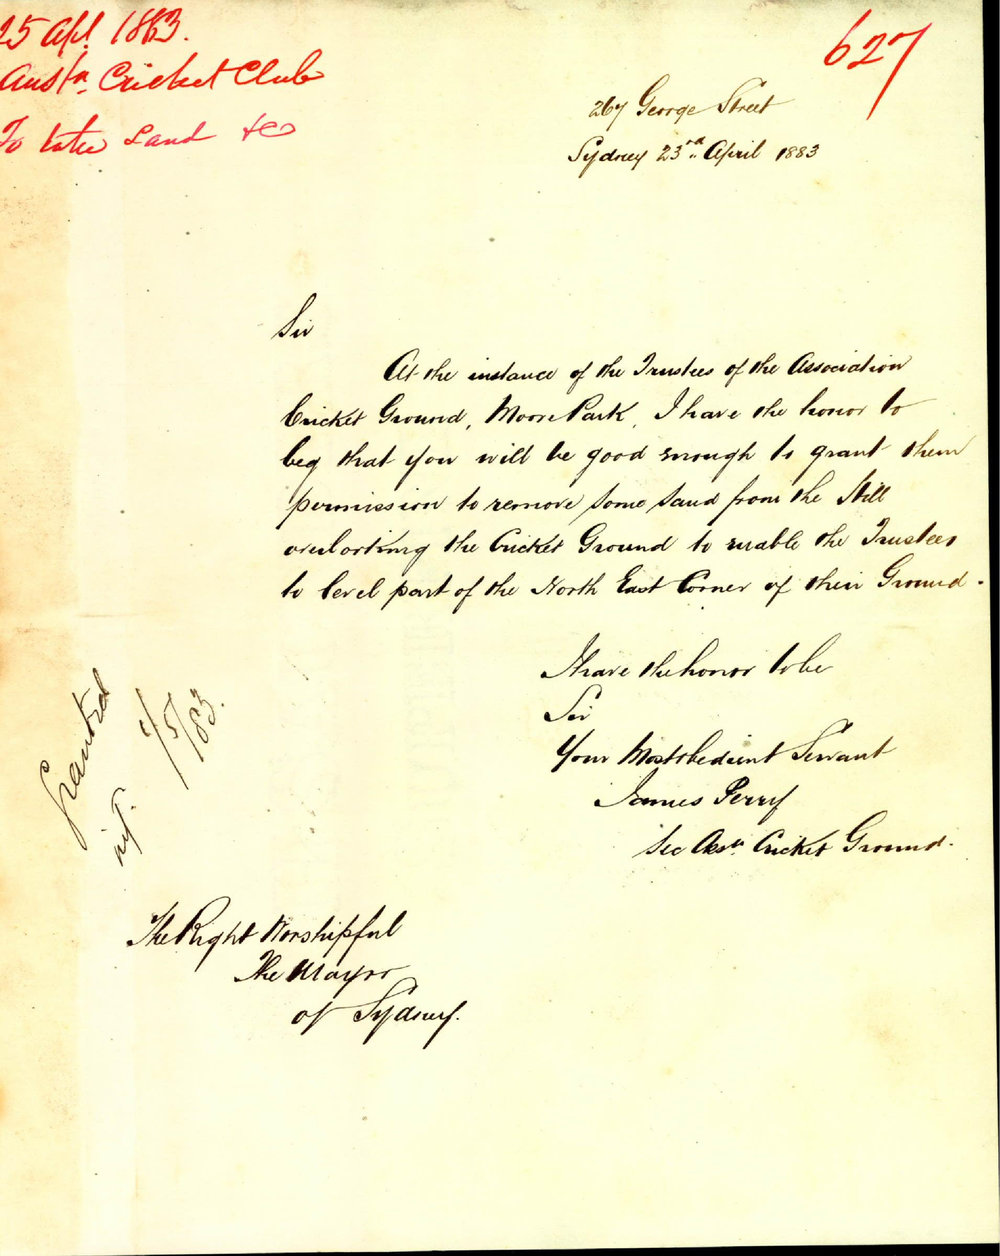 25 Apl. 1883.
Aust'n Cricket Club
To take Sand &c
627
267 George Street
Sydney 23rd April 1883
Sir
At the instance of the Trustees of the Association
Cricket Ground, Moore Park, I have the honor to
beg that you will be good enough to grant them
permission to remove some sand from the Hill
overlooking the Cricket Ground to enable the Trustees
to level part of the North East Corner of their Ground.
I have the honor to be
Sir
Your Most obedient Servant
James Perry
Sec Assn. Cricket Ground.
Granted
1/5/83.
The Right Worshipful
The Mayor
of Sydney.